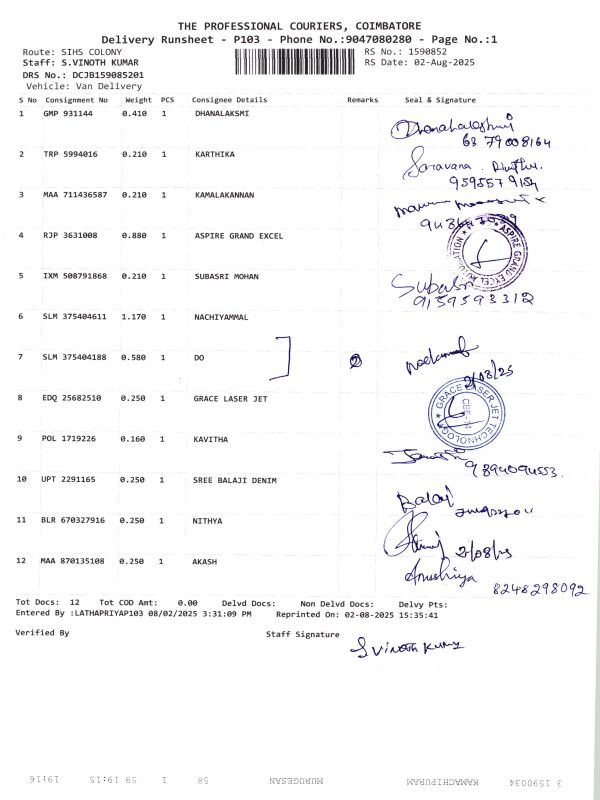 THE PROFESSIONAL COURIERS, COIMBATORE
Delivery Runsheet - P103 - Phone No.:9047080280 - Page No.:1
Route: SIHS COLONY RS No.: 1590852
Staff: S.VINOTH KUMAR RS Date: 02-Aug-2025
DRS No.: DCJB159085201
Vehicle: Van Delivery
S No Consignment No Weight PCS Consignee Details Remarks Seal & Signature
1 GMP 931144 0.410 1 DHANALAKSMI
63 79008164
2 TRP 5994016 0.210 1 KARTHIKA Saravana
9595579154
3 MAA 711436587 0.210 1 KAMALAKANNAN
4 RJP 3631008 0.880 1 ASPIRE GRAND EXCEL ASPIRE GRAND EXCEL
5 IXM 508791868 0.210 1 SUBASRI MOHAN Subasri
9159593312
6 SLM 375404611 1.170 1 NACHIYAMMAL
7 SLM 375404188 0.580 1 DO 2
2/08/25
8 EDQ 25682510 0.250 1 GRACE LASER JET GRACE LASER JET TECHNOLOGY
9 POL 1719226 0.160 1 KAVITHA
9894094553.
10 UPT 2291165 0.250 1 SREE BALAJI DENIM Balaji
11 BLR 670327916 0.250 1 NITHYA 2/08/25
12 MAA 870135108 0.250 1 AKASH Anushiya
8248298092
Tot Docs: 12 Tot COD Amt: 0.00 Delvd Docs: Non Delvd Docs: Delvy Pts:
Entered By :LATHAPRIYAP103 08/02/2025 3:31:09 PM Reprinted On: 02-08-2025 15:35:41
Verified By Staff Signature
S Vinoth Kumar
3 1590034 KAMACHIPURAM MURUGGESAN 58 1 59 19:15 19:16